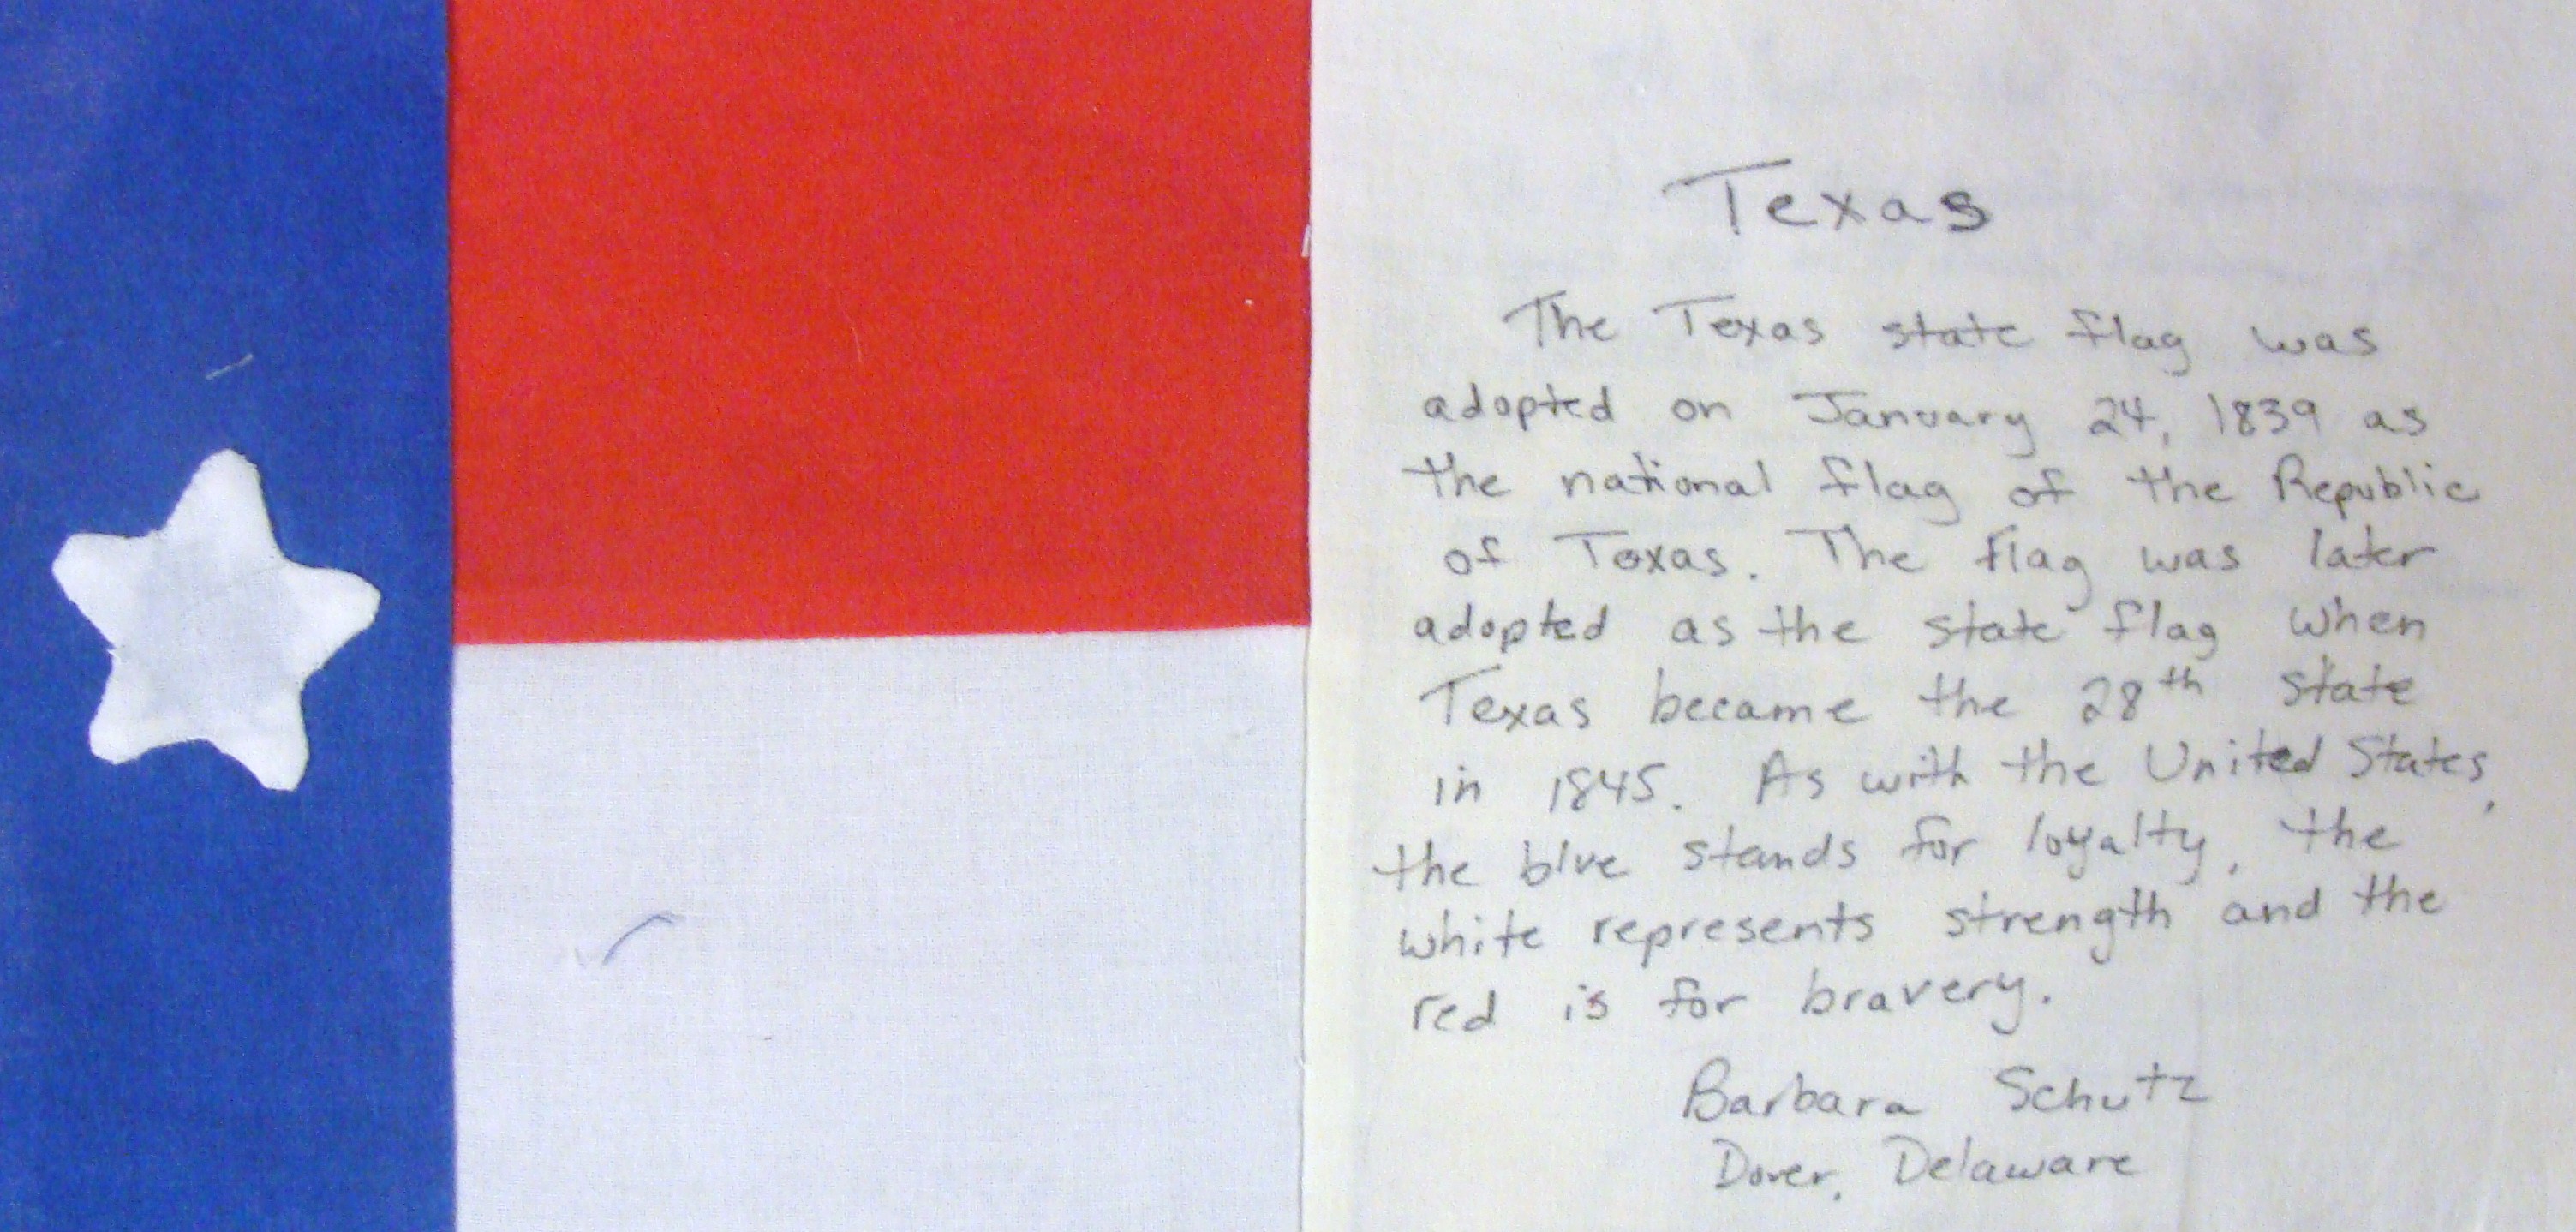 Texas
The Texas state flag was
adopted on January 24, 1839 as
the national flag of the Republic
of Texas. The flag was later
adopted as the state flag when
Texas became the 28th state
in 1845. As with the United States,
the blue stands for loyalty, the
white represents strength and the
red is for bravery.
Barbara Schutz
Dover, Delaware